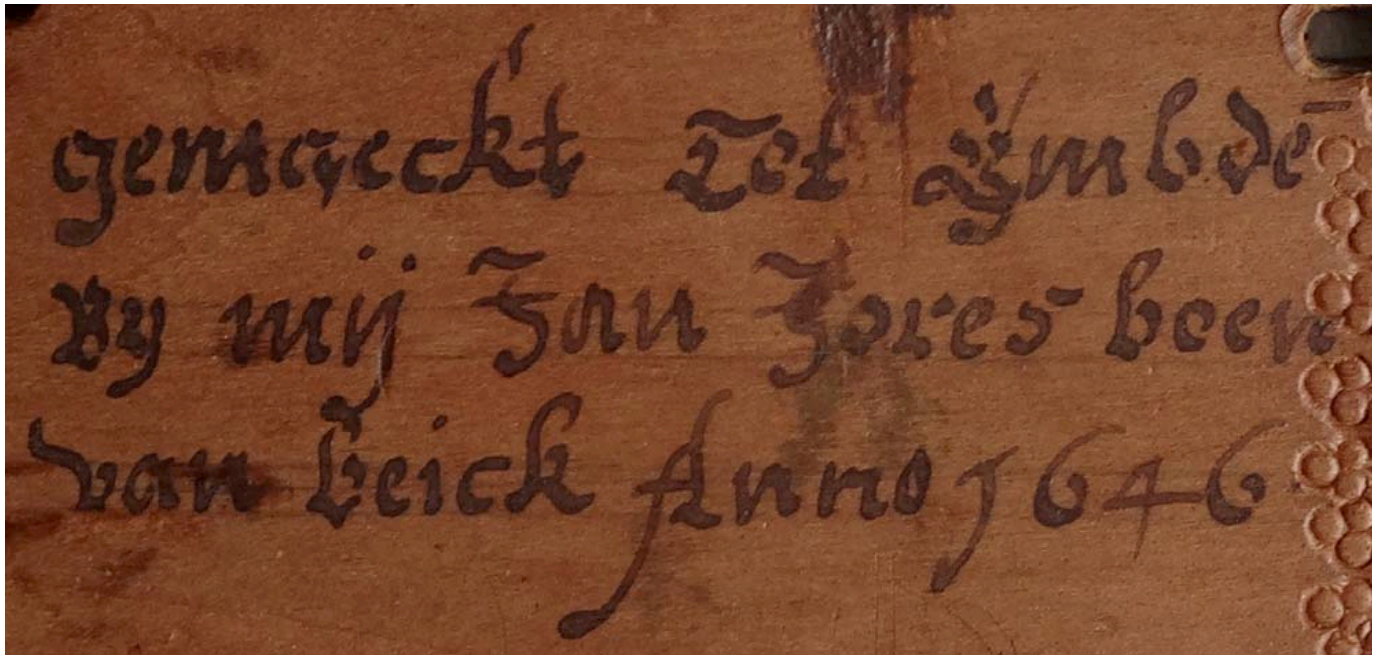 gemaeckt Tot Ÿmbdē
By mij Jan Jores been
van beick Anno 1646